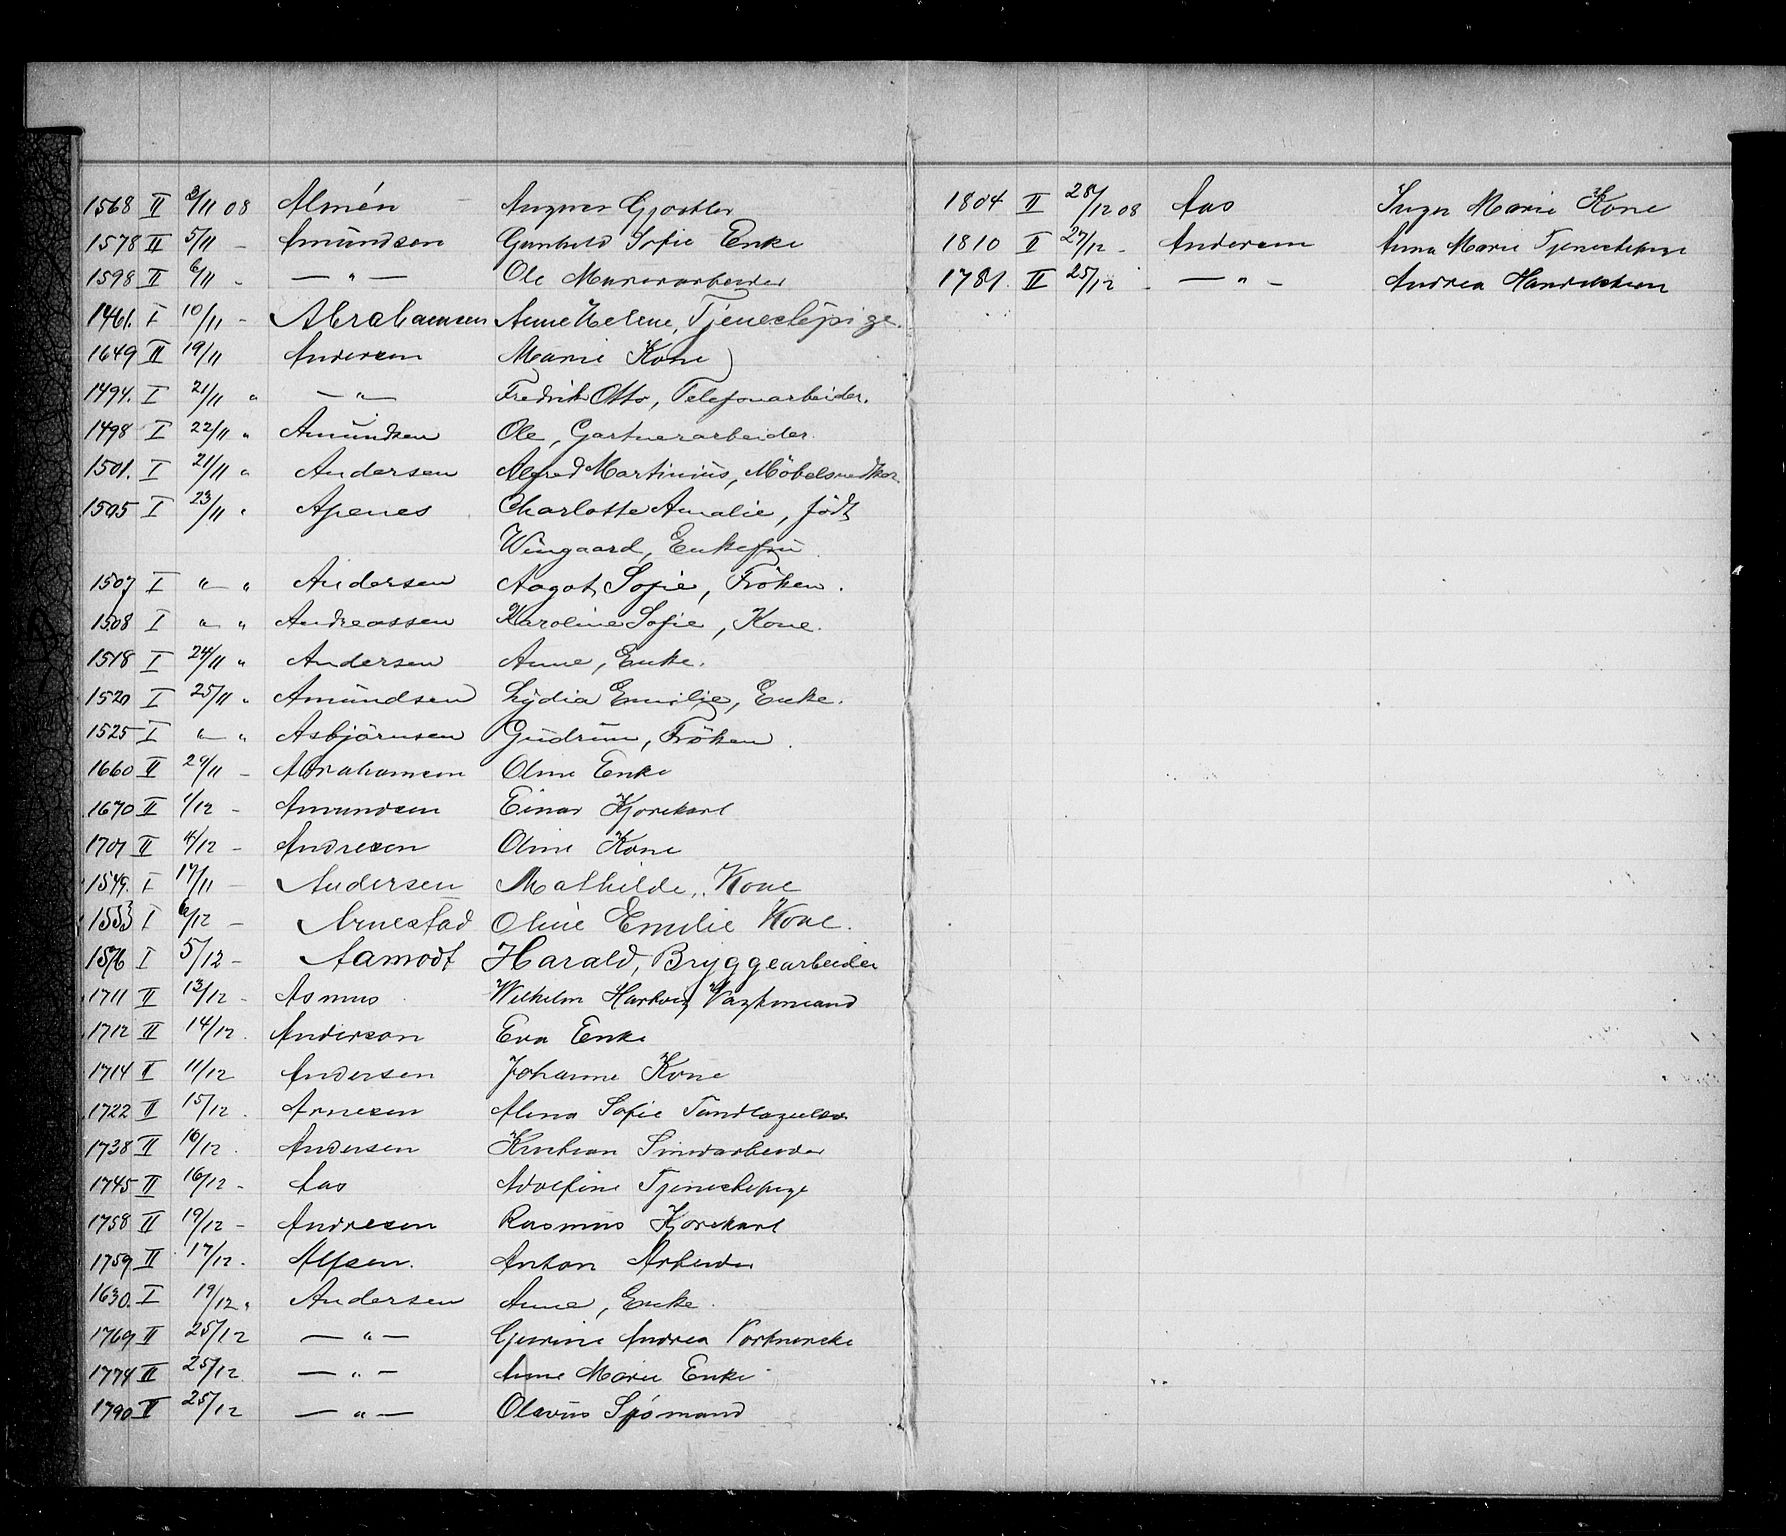 1568 II 3/11 08 Almén
1578 II 5/11 - Amundsen Gunhild Sofie Enke
1598 II 6/11 - — " — Ole Murerarbeider
1461. I 10/11 - Abrahamsen Anne Helene, Tjenestepige.
1649 II 19/11 Andersen Marie Kone
1494. I 21/11 " — " — Fredrik Otto, Telefonarbeider.
1498 I 22/11 " Amundsen Ole, Gartnerarbeider.
1501. I 21/11 " Andersen Alfred Martinius, Möbelsnedker
1505 I 23/11 " Apenes Charlotte Amalie, født
Wingaard, Enkefru
1507 I " " Andersen Aagot Sofie, Fröken.
1508 I " " Andreassen Karoline Sofie, Kone.
1518 I 24/11 " Andersen Anne, Enke.
1520 I 25/11 " Amundsen Lydia Emilie, Enke.
1525 I " " Asbjörnsen Gudrun, Fröken.
1660 II 29/11 - Abrahamsen Oline Enke
1670 II 1/12 - Amundsen Einar Kjorekarl
1701 II 4/12 - Andresen Oline Kone
1549. I 17/11 - Andersen Mathilde, Kone
1553 I 6/12 - Arnestad Oline Emilie Kone.
1576 I 5/12 - Aamodt Harald, Bryggearbeider
1711 II 13/12 - Asmus Wilhelm Hartvig Vagtmand
1712 II 14/12. Anderson Eva Enke
1714 II 11/12 Andersen Johanne Kone
1722 II 15/12. Arnesen Alma Sofie
1738 II 16/12. Andersen Kristian
1745 II 16/12 - Aas Adolfine Tjenestepige
1758 II 19/12 - Andresen Rasmus Kjorekarl
1759 II 17/12. Alfsen. Anton Arbeider
1630. I 19/12 " Andersen Anne, Enke.
1769 II 25/12 — " — Andrea
1774 II 25/12 — " — Anne Marie Enke
1790 II 25/12 — " — Olavus Sjömand
1804 II 28/12 08 Aas Inger Marie Kone
1810 II 27/12 - Andersen Anna Marie Tjenestepige
1781. II 25/12 - — " — Andrea